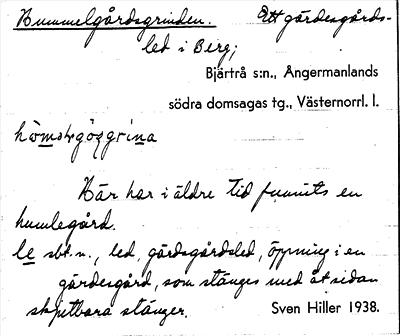 Hummelgårdsgrinden. Ett gärdesgårds-
led i Berg;
Bjärtrå s:n., Ångermanlands
södra domsagas tg., Västernorrl. l.
Här har i äldre tid funnits en
humlegård.
le sbt. n., led, gärdsgårdsled, öppning i en
gärdesgård, som stänges med åt sidan
skjutbara stänger. Sven Hiller 1938.